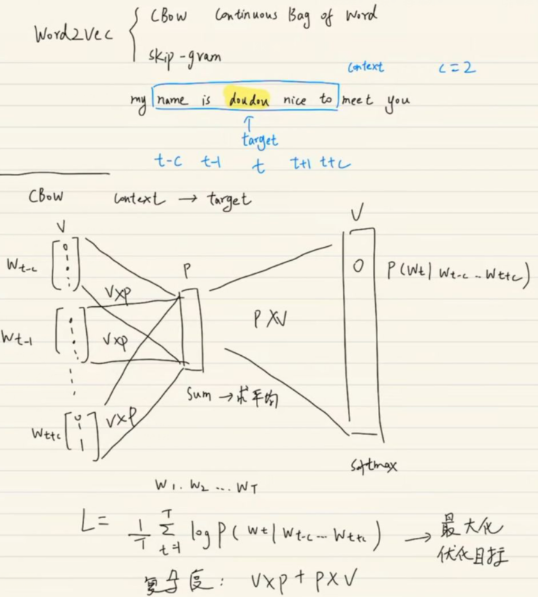 Word2Vec
CBoW Continuous Bag of Word
skip-gram
context c=2
my name is doudou nice to meet you
target
t-c t-1 t t+1 t+c
CBoW context → target
V
P
V
W_{t-c}
V×P
W_{t-1}
V×P
W_{t+c}
V×P
P×V
P(W_t | W_{t-c} ... W_{t+c})
Sum → 求平均
Softmax
W_1, W_2 ... W_T
L = \frac{1}{T} \sum_{t=1}^{T} log P(W_t | W_{t-c} ... W_{t+c}) → 最大化
优化目标
复杂度: V×P + P×V